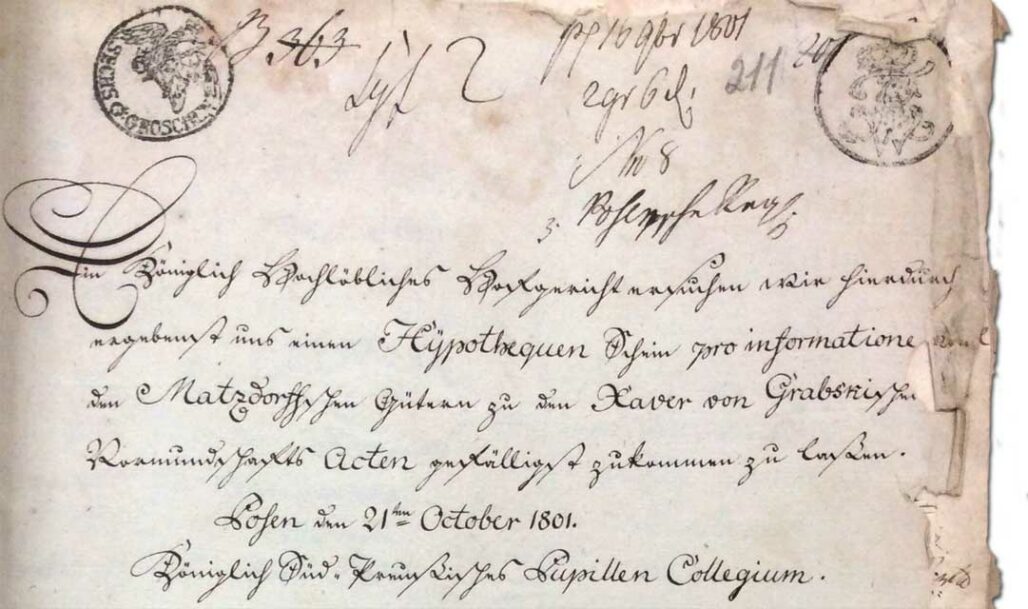 SECHS G: GROSCHEN
B 363
pp 16 9br 1801
211
201
2 gr 6 d.
No 8
Ein Königlich Hochlöbliches Hofgericht ersuchen wir hierdurch
ergebenst uns einen Hÿpothequen Schein pro informatione von
den Matzdorffschen Gütern zu den Xaver von Grabskischen
Vormundschafts Acten gefälligst zukommen zu laßen.
Posen den 21ten October 1801.
Königlich Süd-Preußisches Pupillen Collegium.